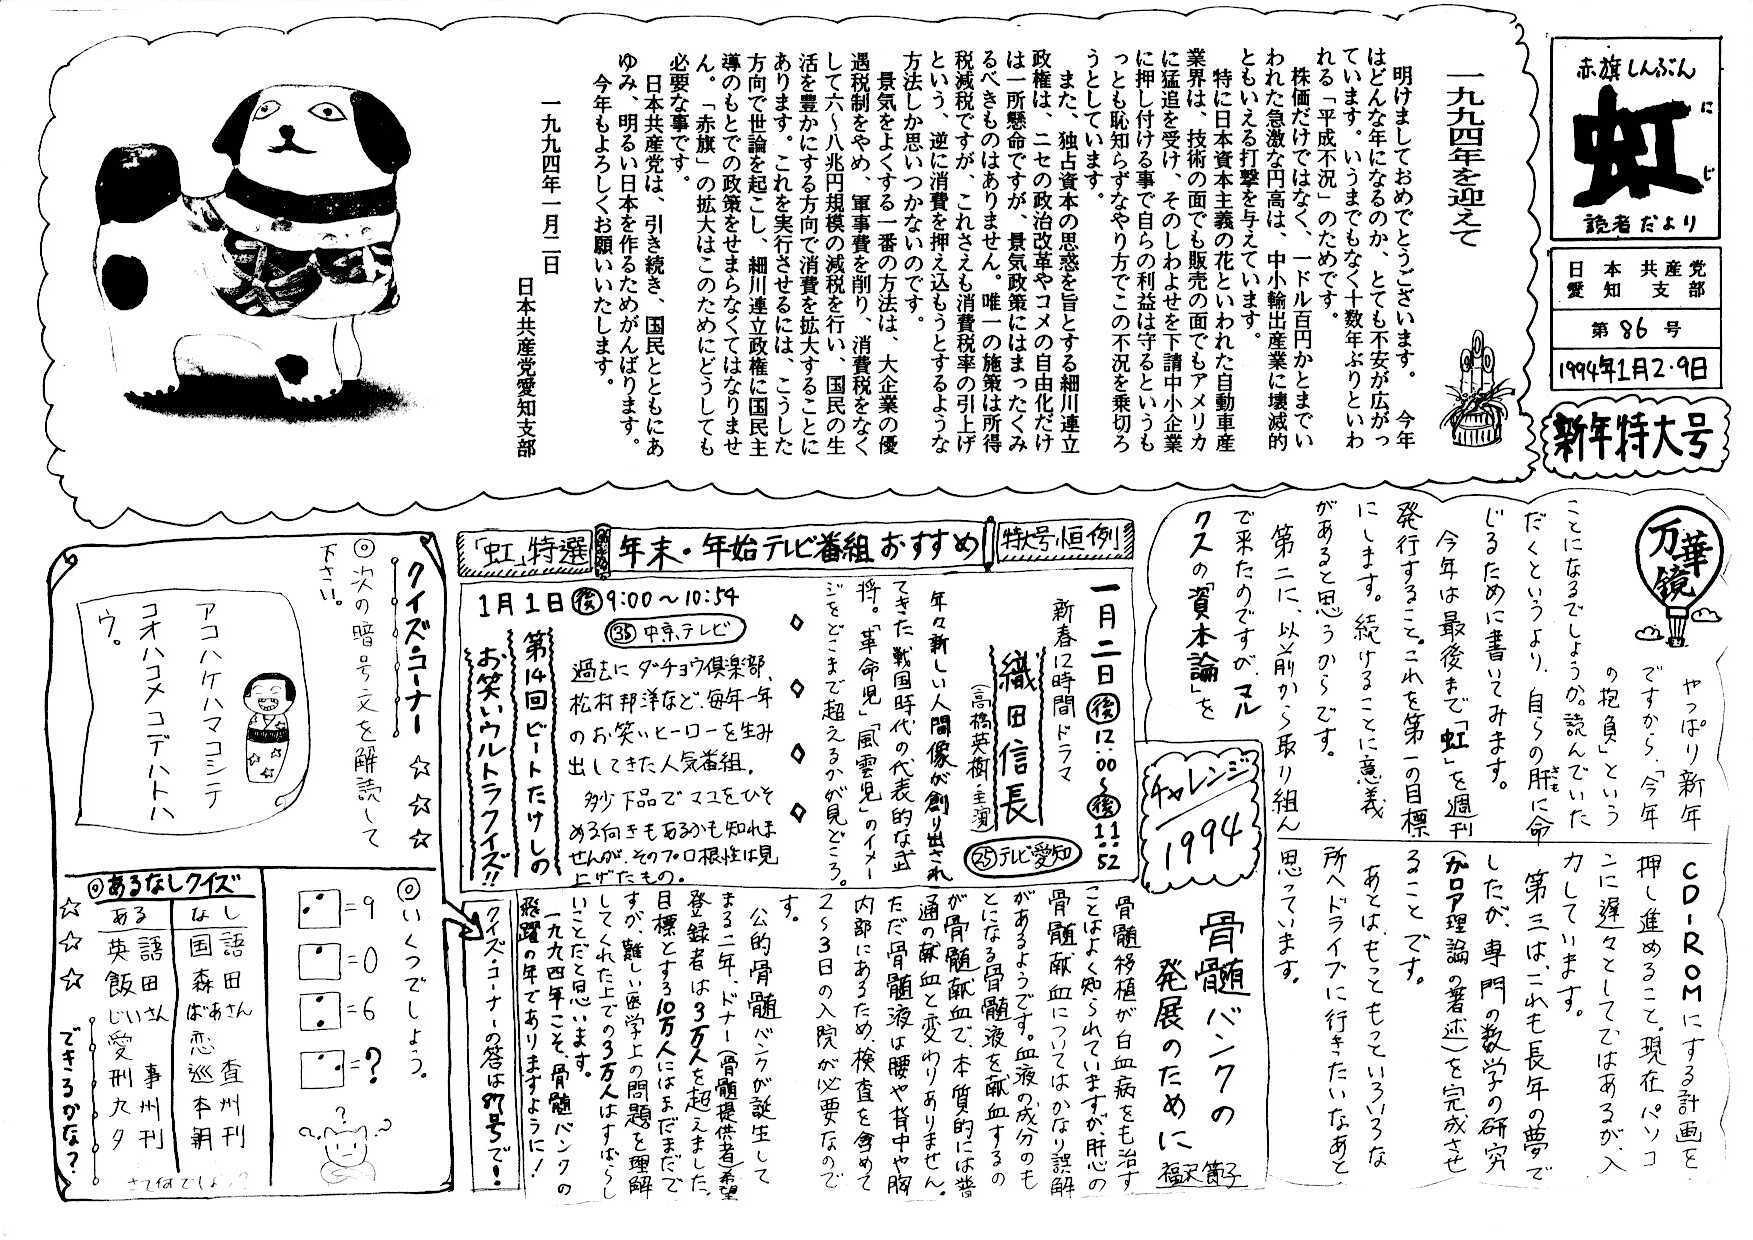 赤旗しんぶん
虹
にじ
読者だより
日本共産党
愛知支部
第86号
1994年1月2・9日
新年特大号
一九九四年を迎えて
明けましておめでとうございます。　今年
はどんな年になるのか、とても不安が広がっ
ています。いうまでもなく十数年ぶりといわ
れる「平成不況」のためです。
株価だけではなく、一ドル百円かとまでい
われた急激な円高は、中小輸出産業に壊滅的
ともいえる打撃を与えています。
特に日本資本主義の花といわれた自動車産
業界は、技術の面でも販売の面でもアメリカ
に猛追を受け、そのしわよせを下請中小企業
に押し付ける事で自らの利益は守るというも
っとも恥知らずなやり方でこの不況を乗切ろ
うとしています。
また、独占資本の思惑を旨とする細川連立
政権は、ニセの政治改革やコメの自由化だけ
は一所懸命ですが、景気政策にはまったくみ
るべきものはありません。唯一の施策は所得
税減税ですが、これさえも消費税率の引上げ
という、逆に消費を押え込もうとするような
方法しか思いつかないのです。
景気をよくする一番の方法は、大企業の優
遇税制をやめ、軍事費を削り、消費税をなく
して六～八兆円規模の減税を行い、国民の生
活を豊かにする方向で消費を拡大することに
あります。これを実行させるには、こうした
方向で世論を起こし、細川連立政権に国民主
導のもとでの政策をせまらなくてはなりませ
ん。「赤旗」の拡大はこのためにどうしても
必要な事です。
日本共産党は、引き続き、国民とともにあ
ゆみ、明るい日本を作るためがんばります。
今年もよろしくお願いいたします。
一九九四年一月二日
日本共産党愛知支部
万華鏡
やっぱり新年
ですから、「今年
の抱負」という
ことになるでしょうか。読んでいた
だくというより、自らの肝に命
じるために書いてみます。
今年は最後まで「虹」を週刊
発行すること。これを第一の目標
にします。続けることに意義
があると思うからです。
第二に、以前から取り組ん
で来たのですが、マル
クスの「資本論」を
CD-ROMにする計画を
押し進めること。現在パソコ
ンに遅々としてではあるが、入
力しています。
第三は、これも長年の夢で
したが、専門の数学の研究
(ガロア理論の著述)を完成させ
ることです。
あとは、もっともっといろいろな
所へドライブに行きたいなあと
思っています。
チャレンジ
1994
「虹」特選
年末・年始テレビ番組おすすめ
特大号恒例
一月二日㊡12:00～㊡11:52
新春12時間ドラマ
織田信長
(高橋英樹・主演)
㉕テレビ愛知
年々新しい人間像が創り出され
てきた戦国時代の代表的な武
将。「革命児」「風雲児」のイメー
ジをどこまで超えるかが見どころ。
1月1日㊡9:00～10:54
㉟中京テレビ
第14回ビートたけしの
お笑いウルトラクイズ!!
過去にダチョウ倶楽部、
松村邦洋など、毎年一年
のお笑いヒーローを生み
出してきた人気番組。
多少下品でマユをひそ
める向きもあるかも知れま
せんが、そのプロ根性は見
上げたもの。
骨髄バンクの
発展のために
福沢節子
骨髄移植が白血病をも治す
ことはよく知られていますが、肝心の
骨髄献血についてはかなり誤解
があるようです。血液の成分のも
とになる骨髄液を献血するの
が骨髄献血で、本質的には普
通の献血と変わりありません。
ただ骨髄液は腰や背中や胸
内部にあるため、検査を含めて
2～3日の入院が必要なので
す。
公的骨髄バンクが誕生して
まる二年、ドナー(骨髄提供者)希望
登録者は3万人を超えました。
目標とする10万人にはまだまだで
すが、難しい医学上の問題を理解
してくれた上での3万人はすばらし
いことだと思います。
一九九四年こそ、骨髄バンクの
飛躍の年でありますように!
クイズ・コーナーの答は87号で!
クイズ・コーナー☆☆☆
◎次の暗号文を解読して
下さい。
アコハケハマコシテ
コオハコメコデハトハ
ウ。
◎いくつでしょう。
=9
=0
=6
=?
◎あるなしクイズ
ある　なし
英語　国語
飯田　森田
じいさん　ばあさん
愛　恋
刑事　巡査
九州　本州
夕刊　朝刊
さて何でしょう?
☆☆☆できるかな?